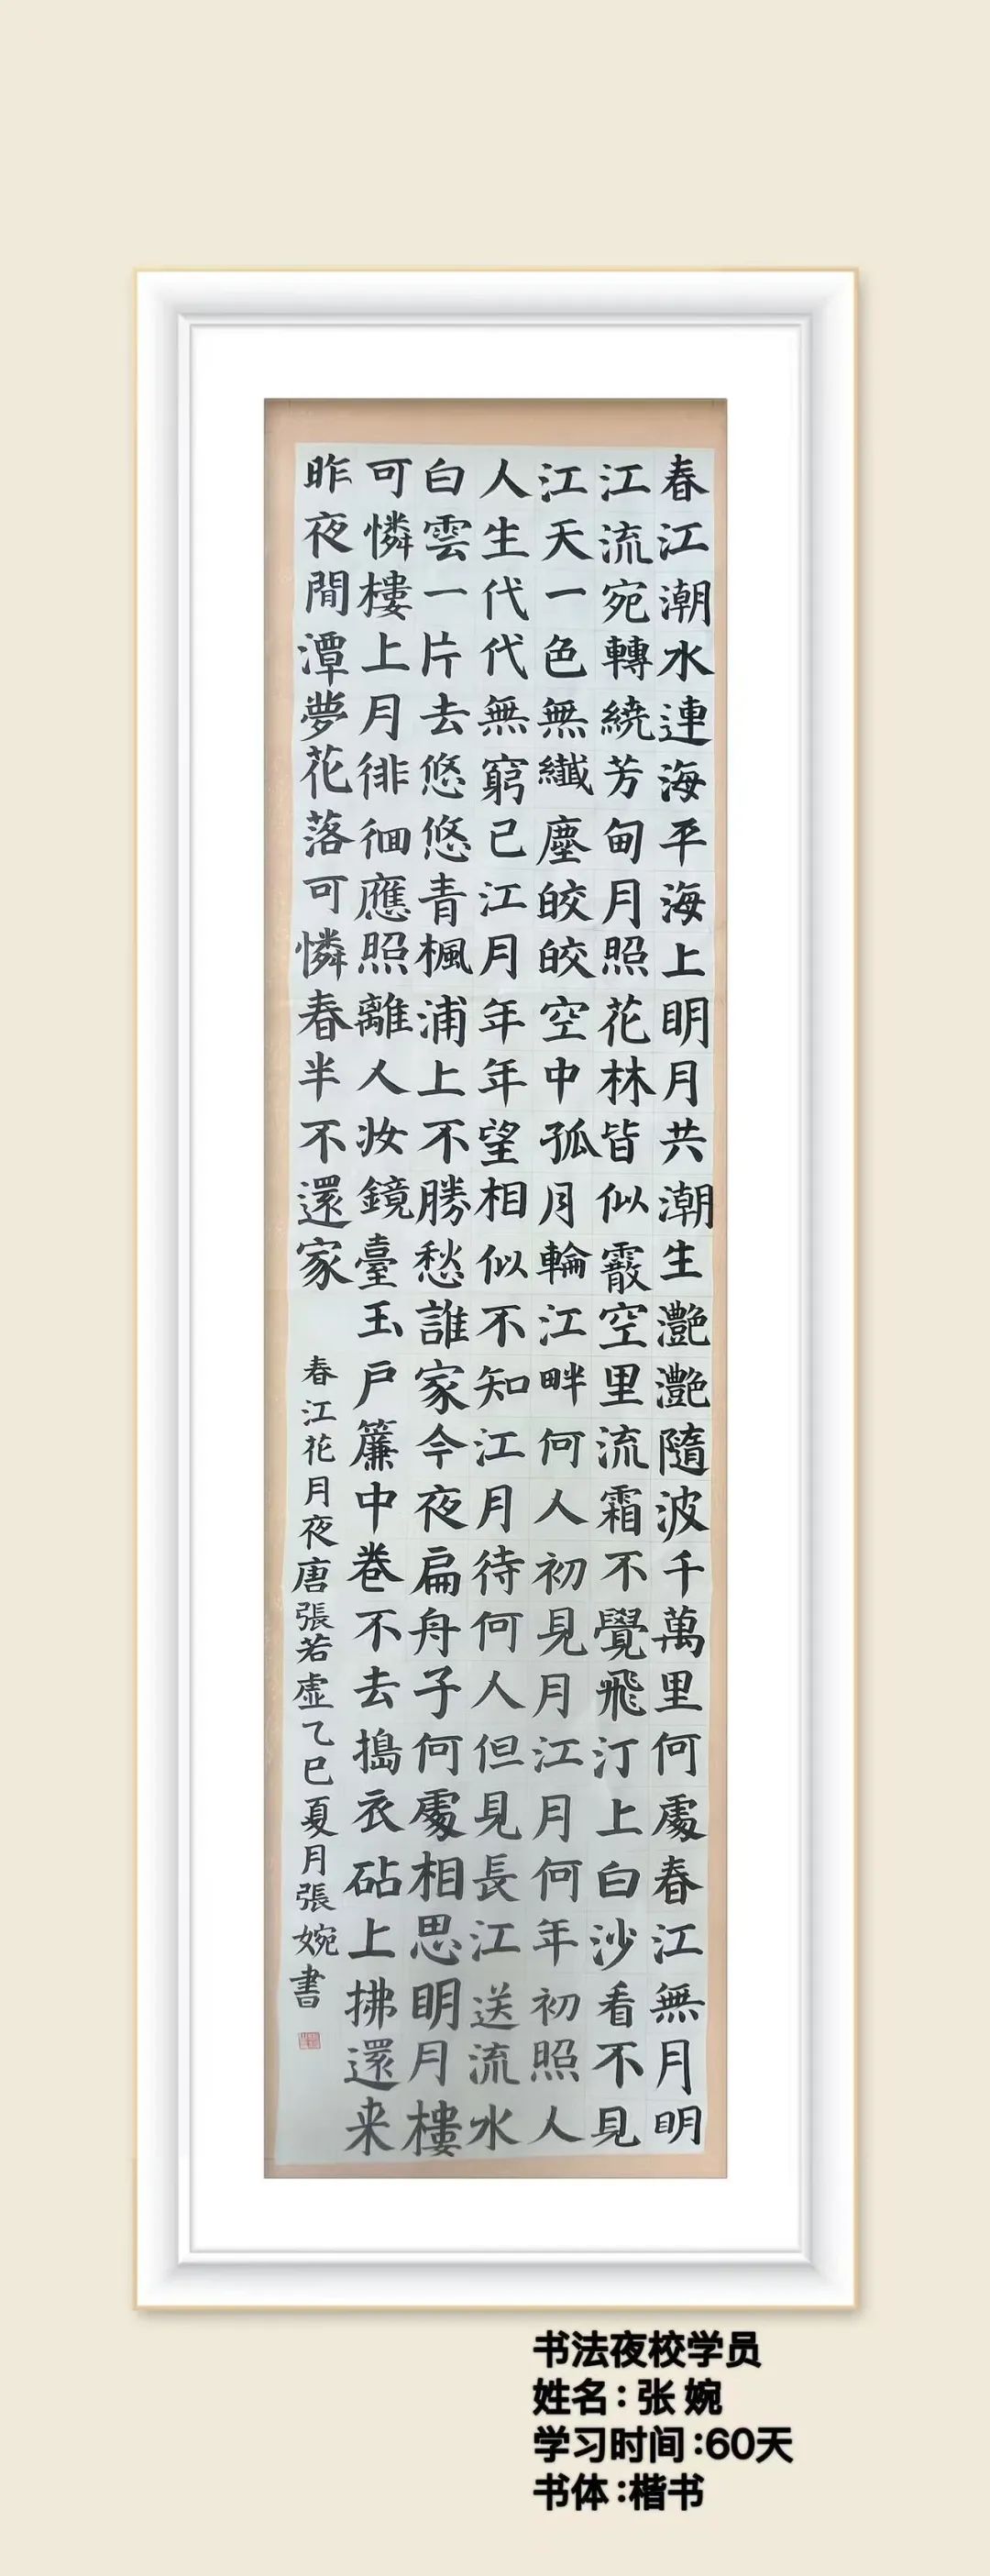 春江潮水連海平海上明月共潮生灧灧隨波千萬里何處春江無月明
江流宛轉繞芳甸月照花林皆似霰空里流霜不覺飛汀上白沙看不見
江天一色無纖塵皎皎空中孤月輪江畔何人初見月江月何年初照人
人生代代無窮已江月年年望相似不知江月待何人但見長江送流水
白雲一片去悠悠青楓浦上不勝愁誰家今夜扁舟子何處相思明月樓
可憐樓上月徘徊應照離人妆鏡臺玉戶簾中卷不去搗衣砧上拂還来
昨夜閒潭夢花落可憐春半不還家
春江花月夜唐張若虛乙巳夏月張婉書
书法夜校学员
姓名:张 婉
学习时间:60天
书体:楷书